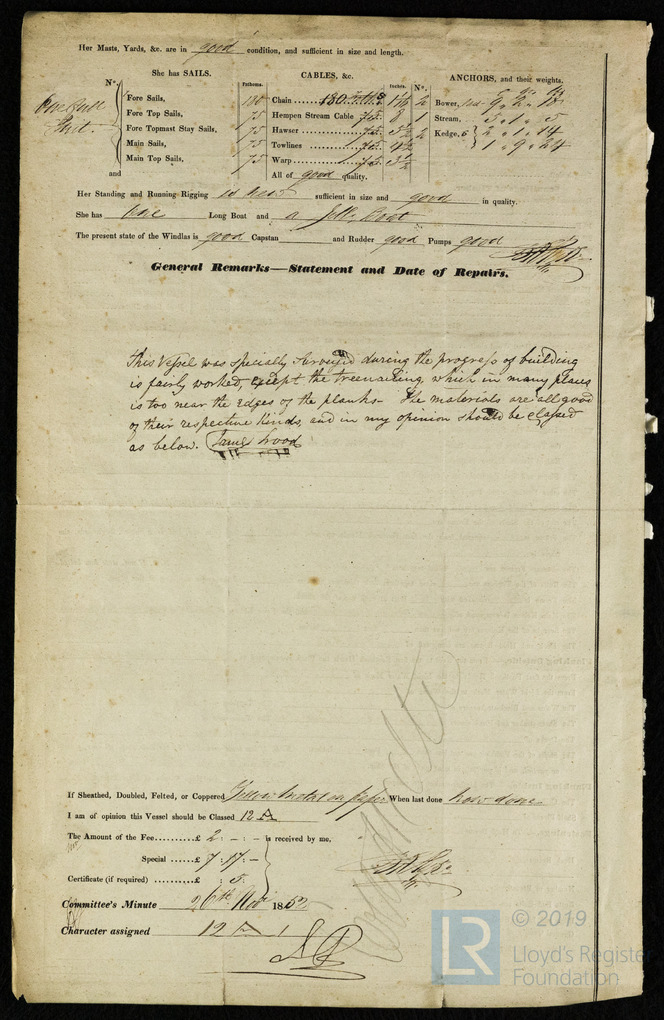 Her Masts, Yards, &c. are in good condition, and sufficient in size and length.
She has SAILS. CABLES, &c. ANCHORS, and their weights.
N°. Fathoms. Inches. N°.
One full Suit.
Fore Sails, 180 Chain 180 1 7/16 2 Bower, 9 . 2 . 18
Fore Top Sails, 75 Hempen Stream Cable 75 8 1 Stream, 5 . 1 . 5
Fore Topmast Stay Sails, 75 Hawser 75 5½ 2 Kedge, 2 . 1 . 14
Main Sails, 75 Towlines 75 4½ 1 . 9 . 24
Main Top Sails, 75 Warp 75 3½
and All of good quality.
Her Standing and Running Rigging is new sufficient in size and good in quality.
She has One Long Boat and a Jolly Boat
The present state of the Windlas is good Capstan and Rudder good Pumps good
General Remarks—Statement and Date of Repairs.
This Vessel was specially Surveyed during the progress of building
is fairly worked, except the treenailing, which in many places
is too near the edges of the planks- The materials are all good
of their respective kinds, and in my opinion should be classed
as below. Saml Wood
If Sheathed, Doubled, Felted, or Coppered Yellow metal on paper When last done now done
I am of opinion this Vessel should be Classed 12 A
The Amount of the Fee..........£ 2 : - : - is received by me,
Special ......£ 7 : 17 : -
Certificate (if required) ........£ : 5 :
Committee's Minute 26th Novr 1852
Character assigned 12 A 1
© 2019
LR Lloyd's Register
Foundation